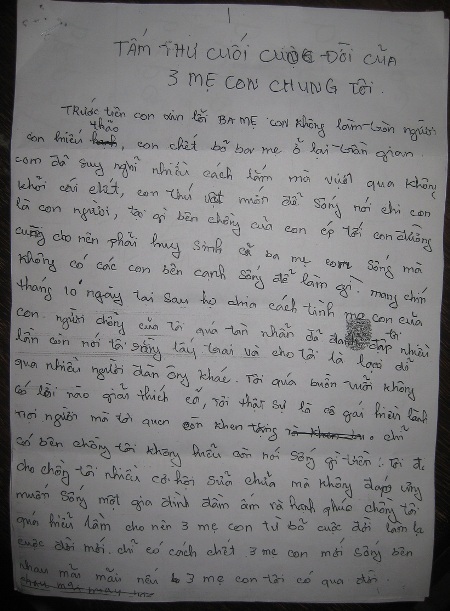 1
TẤM THƯ CUỐI CUỘC ĐỜI CỦA
3 MẸ CON CHUNG TÔI.
TRƯỚC tiên con xin lỗi BA MẸ con không làm tròn người
con hiếu thảo, con chết bỏ ba mẹ ở lại trần gian.
con đã suy nghĩ nhiều cách lắm mà vượt qua không
khỏi cái chết, con thú vật muốn để sống nói chi con
là con người, tại gì bên chồng của con ép tới con đường
cùng cho nên phải huy sinh cả ba mẹ con sống mà
không có các con bên cạnh sống để làm gì. mang chín
tháng 10 ngày tại sau họ chia cách tình mẹ con của
con. người chồng của tôi quá tàn nhẫn đã đánh đập tôi nhiều
lần còn nói tôi sống lấy trai và cho tôi là loại đỗ
qua nhiều người đàn ông khác. Tôi quá buồn vười không
có lời nào giải thích cả, tôi thật sự là cô gái hiền lành
nơi người mà tôi quen còn khen tặng chỉ
có bên chồng tôi không hiểu còn nói sống gì tiền. Tôi đã
cho chồng tôi nhiều cơ hội sửa chữa mà không đáp ứng
muốn sống một gia đình đầm ấm và hạnh phúc chồng tôi
quá hiểu lầm cho nên 3 mẹ con từ bỏ cuộc đời làm lại
cuộc đời mới. chỉ có cách chết 3 mẹ con mới sống bên
nhau mãi mãi nếu 3 mẹ con tôi có qua đời.